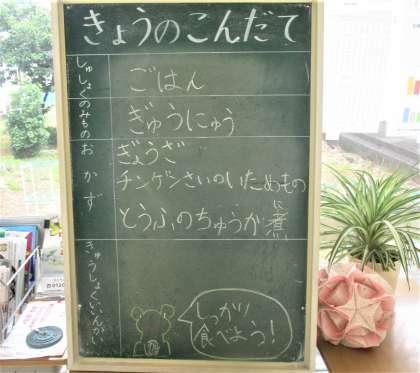 きょうのこんだて
しゅしょくのみもの
ごはん
ぎゅうにゅう
おかず
ぎょうざ
チンゲンさいのいためもの
とうふのちゅうか煮
きゅうしょくいいんかい
しっかり
食べよう!